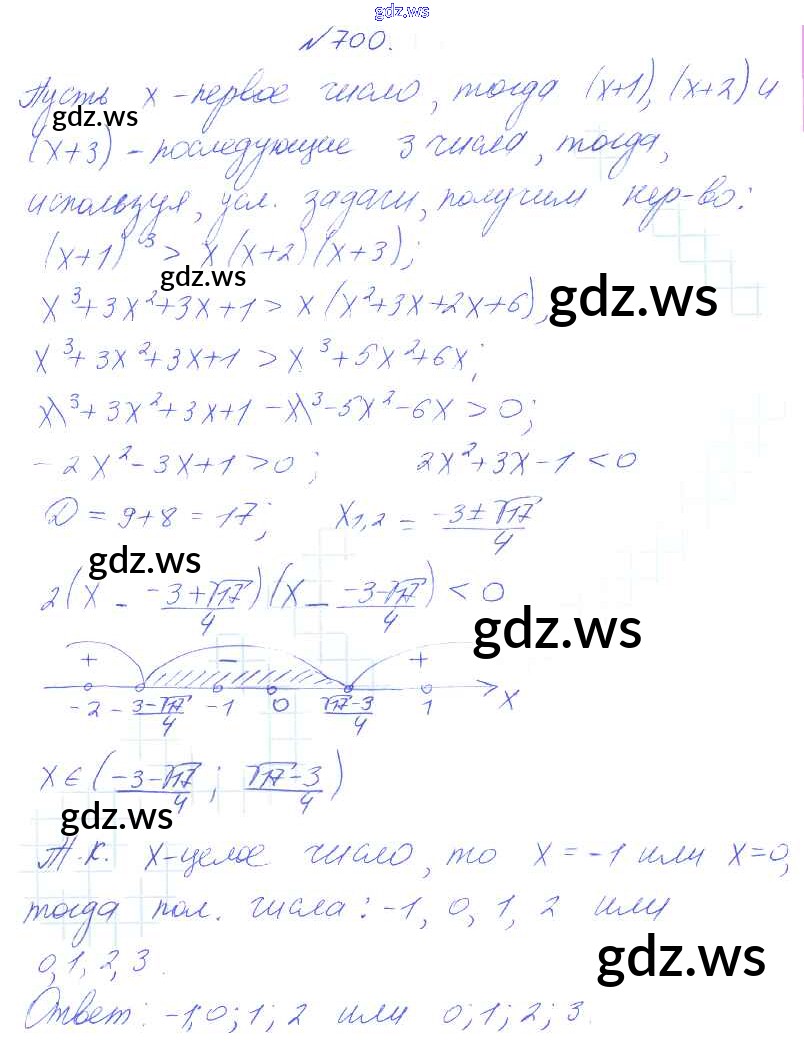 gdz.ws
№700.
Пусть x - первое число, тогда (x+1), (x+2) и
gdz.ws
(x+3) - последующие 3 числа, тогда,
используя, усл. задачи, получим нер-во:
(x+1)³ > x(x+2)(x+3);
gdz.ws
x³+3x²+3x+1 > x(x²+3x+2x+6);
gdz.ws
x³+3x²+3x+1 > x³+5x²+6x;
x³+3x²+3x+1-x³-5x²-6x > 0;
-2x²-3x+1>0; 2x²+3x-1<0
D = 9+8 = 17; x1,2 = (-3±√17)/4
gdz.ws
2(x - (-3+√17)/4)(x - (-3-√17)/4) < 0
gdz.ws
+ - +
-2 -3-√17/4 -1 0 √17-3/4 1 x
x∈((-3-√17)/4; (√17-3)/4)
gdz.ws
Т.к. x-целое число, то x=-1 или x=0,
тогда пол. числа: -1, 0, 1, 2 или
0, 1, 2, 3.
gdz.ws
Ответ: -1;0;1;2 или 0;1;2;3.